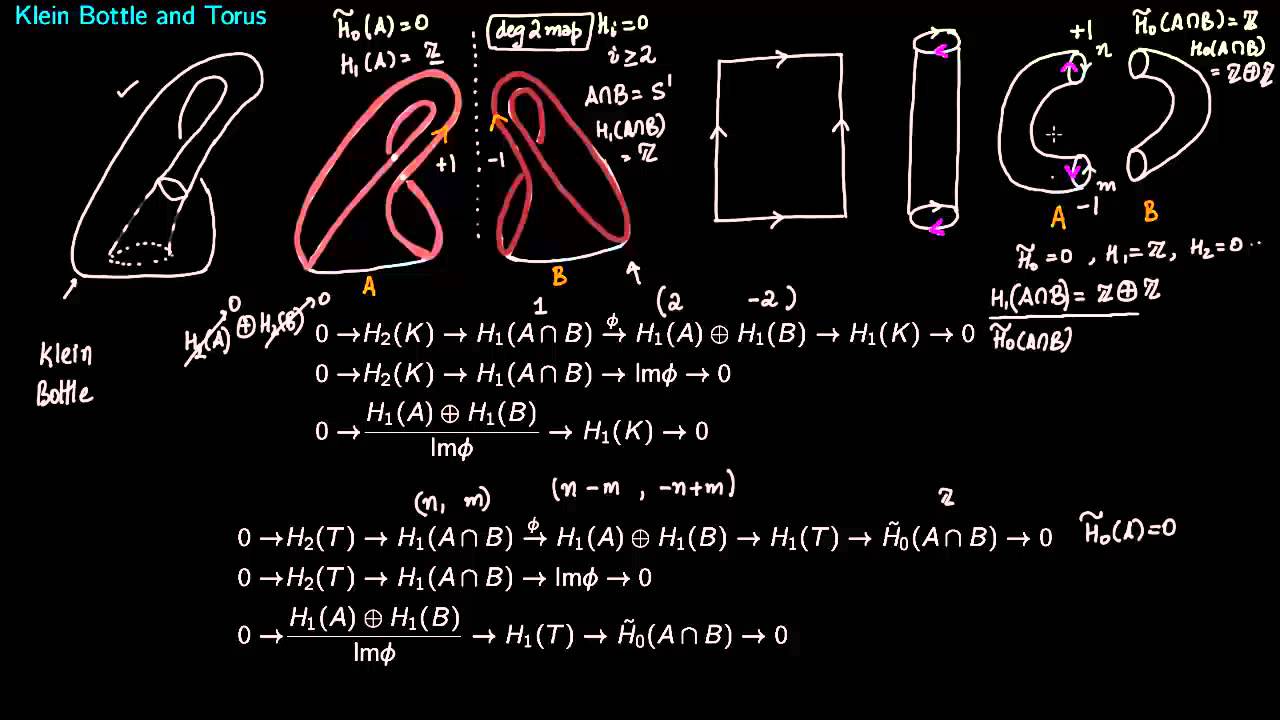 Klein Bottle and Torus
H̃₀(A)=0
H₁(A) = ℤ
deg 2 map
Hᵢ=0
i≥2
A∩B = S¹
H₁(A∩B)
= ℤ
+1
-1
A
B
Klein
Bottle
+1
n
m
-1
A
B
H̃₀(A∩B) = ℤ
H₀(A∩B)
= ℤ⊕ℤ
H̃₀ = 0 , H₁ = ℤ, H₂ = 0 ...
H₁(A∩B) = ℤ⊕ℤ
H̃₀(A∩B)
0 0
H₂(A) ⊕ H₂(B)
1 (2 -2)
0 → H₂(K) → H₁(A ∩ B) →ϕ H₁(A) ⊕ H₁(B) → H₁(K) → 0
0 → H₂(K) → H₁(A ∩ B) → Imϕ → 0
0 → H₁(A) ⊕ H₁(B) / Imϕ → H₁(K) → 0
(n, m) (n-m , -n+m) ℤ
0 → H₂(T) → H₁(A ∩ B) →ϕ H₁(A) ⊕ H₁(B) → H₁(T) → H̃₀(A ∩ B) → 0 H̃₀(A)=0
0 → H₂(T) → H₁(A ∩ B) → Imϕ → 0
0 → H₁(A) ⊕ H₁(B) / Imϕ → H₁(T) → H̃₀(A ∩ B) → 0